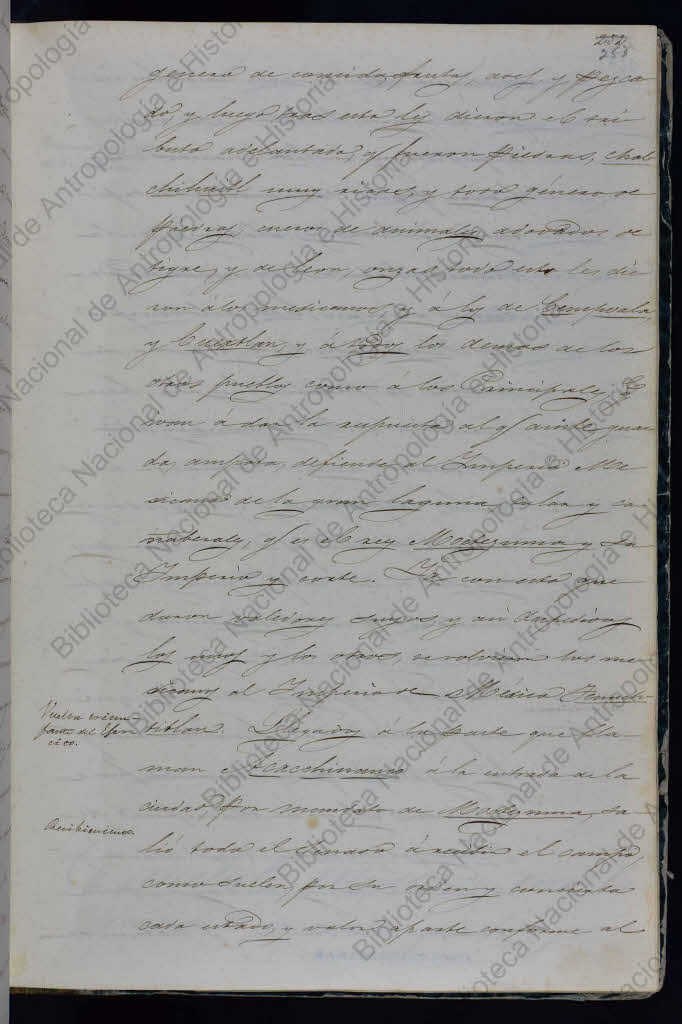 252
253
genero de comida, frutas, aves, y Pezca-
do, y luego tras esto les dieron el tri-
buto adelantado, y fueron Piedras, chal-
chihuitl muy ricas, y todo género de
piedras, cueros de animales adovados de
tigre, y de leon, onzas todo esto les die-
ron á los mexicanos, y á los de Cempoala,
y Cuextlan, y á todos los demas de los
otros pueblos como á los Principales q
ivan á dar la respuesta al q ampte guar-
da, ampara, defiende al Imperio Me-
xicano de la gran laguna, tular y ca-
ñaberales, q es el rey Moctezuma y su
Imperio y corte. Ya con esto que-
daron valedores suyos, y asi despidiendose
los unos y los otros, se volvieron los me-
xicanos al Imperio de México Tenuch-
Vuelta triun-
fante del Ejer-
cito.
titlan. Llegados á la parte que lla-
man Acachinanco á la entrada de la
ciudad, por mandato de Moctezuma, sa-
Recibimiento.
lió todo el Senado á recibir el campo,
como suelen por su orden y concierto
cada estado, y valor aparte conforme al
Biblioteca Nacional de Antropología e Historia